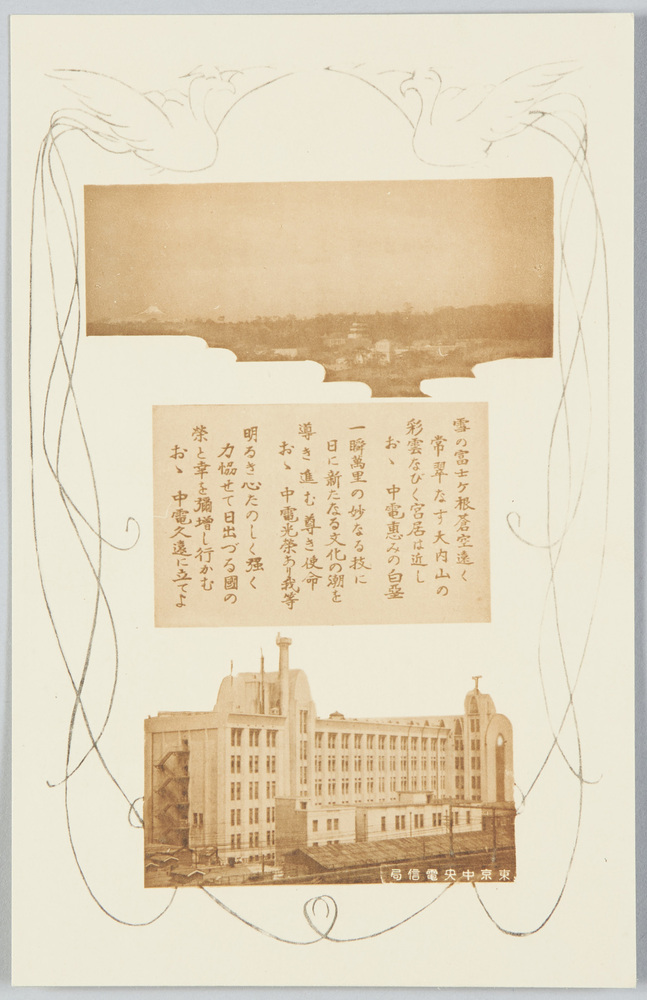 雪の富士ケ根蒼空遠く
常翠なす大内山の
彩雲なびく宮居は近し
おゝ 中電惠みの白堊
一瞬萬里の妙なる技に
日に新たなる文化の潮を
導き進む尊き使命
おゝ 中電光榮あり我等
明るき心たのしく强く
力協せて日出づる國の
榮と幸を彌増し行かむ
おゝ 中電久遠に立てよ
局信電央中京東